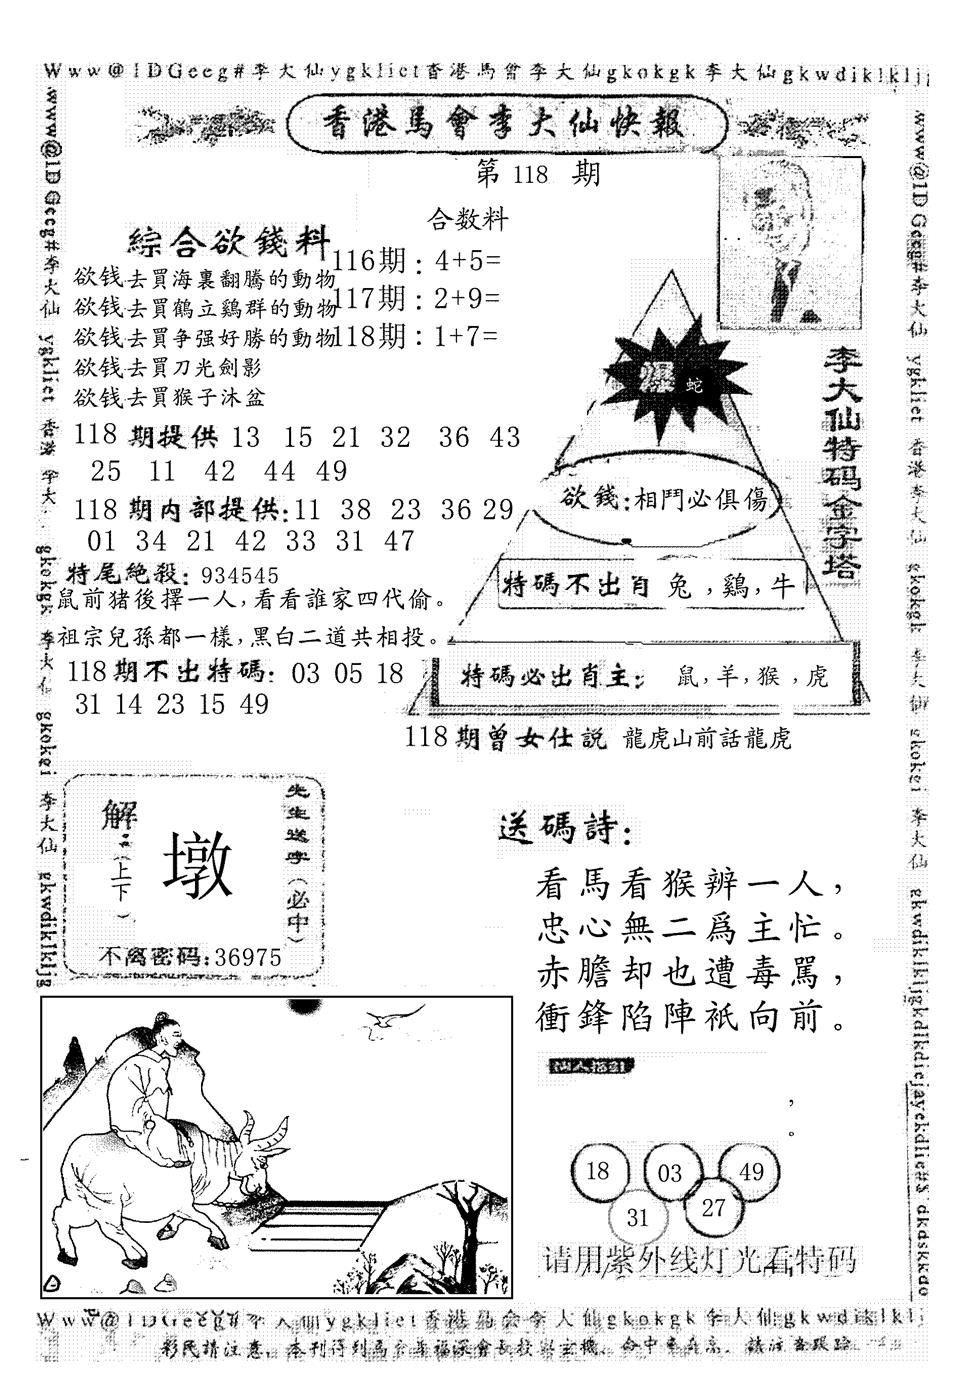 Www@1DGeeg#李大仙ygkliet香港馬會李大仙gkokgk李大仙gkwdiklkljg
香港馬會李大仙快報
第 118 期
合数料
綜合欲錢料
116期：4+5=
117期：2+9=
118期：1+7=
欲钱去買海裏翻騰的動物
欲钱去買鶴立鷄群的動物
欲钱去買争强好勝的動物
欲钱去買刀光劍影
欲钱去買猴子沐盆
118 期提供 13 15 21 32 36 43
25 11 42 44 49
118 期内部提供:11 38 23 36 29
01 34 21 42 33 31 47
特尾絶殺: 934545
鼠前猪後擇一人,看看誰家四代偷。
祖宗兒孫都一樣,黑白二道共相投。
118期不出特碼: 03 05 18
31 14 23 15 49
李大仙特码金字塔
爆 蛇
欲錢:相鬥必俱傷
特碼不出肖 兔,鷄,牛
特碼必出肖主: 鼠,羊,猴,虎
118期曾女仕説 龍虎山前話龍虎
先生送字(必中)
解(上下)
墩
不离密码:36975
送碼詩:
看馬看猴辨一人,
忠心無二爲主忙。
赤膽却也遭毒駡,
衝鋒陷陣衹向前。
，
。
18 03 49
31 27
请用紫外线灯光看特码
www@1DGeeg#李大仙 ygkliet 香港 李大 gkokgk 李大仙 gkokei 李大仙 gkwdiklkljg
www@1DGeeg#李大仙 ygkliet 香港李大仙 gkokgk 李大仙 gkokei 李大仙 gkwdiklkljgkdlkdiejayekdlie#$ dkdskkdo
Www@1DGeeg#李大仙ygkliet香港馬会李大仙gkokgk李大仙gkwdiklklj
彩民請注意